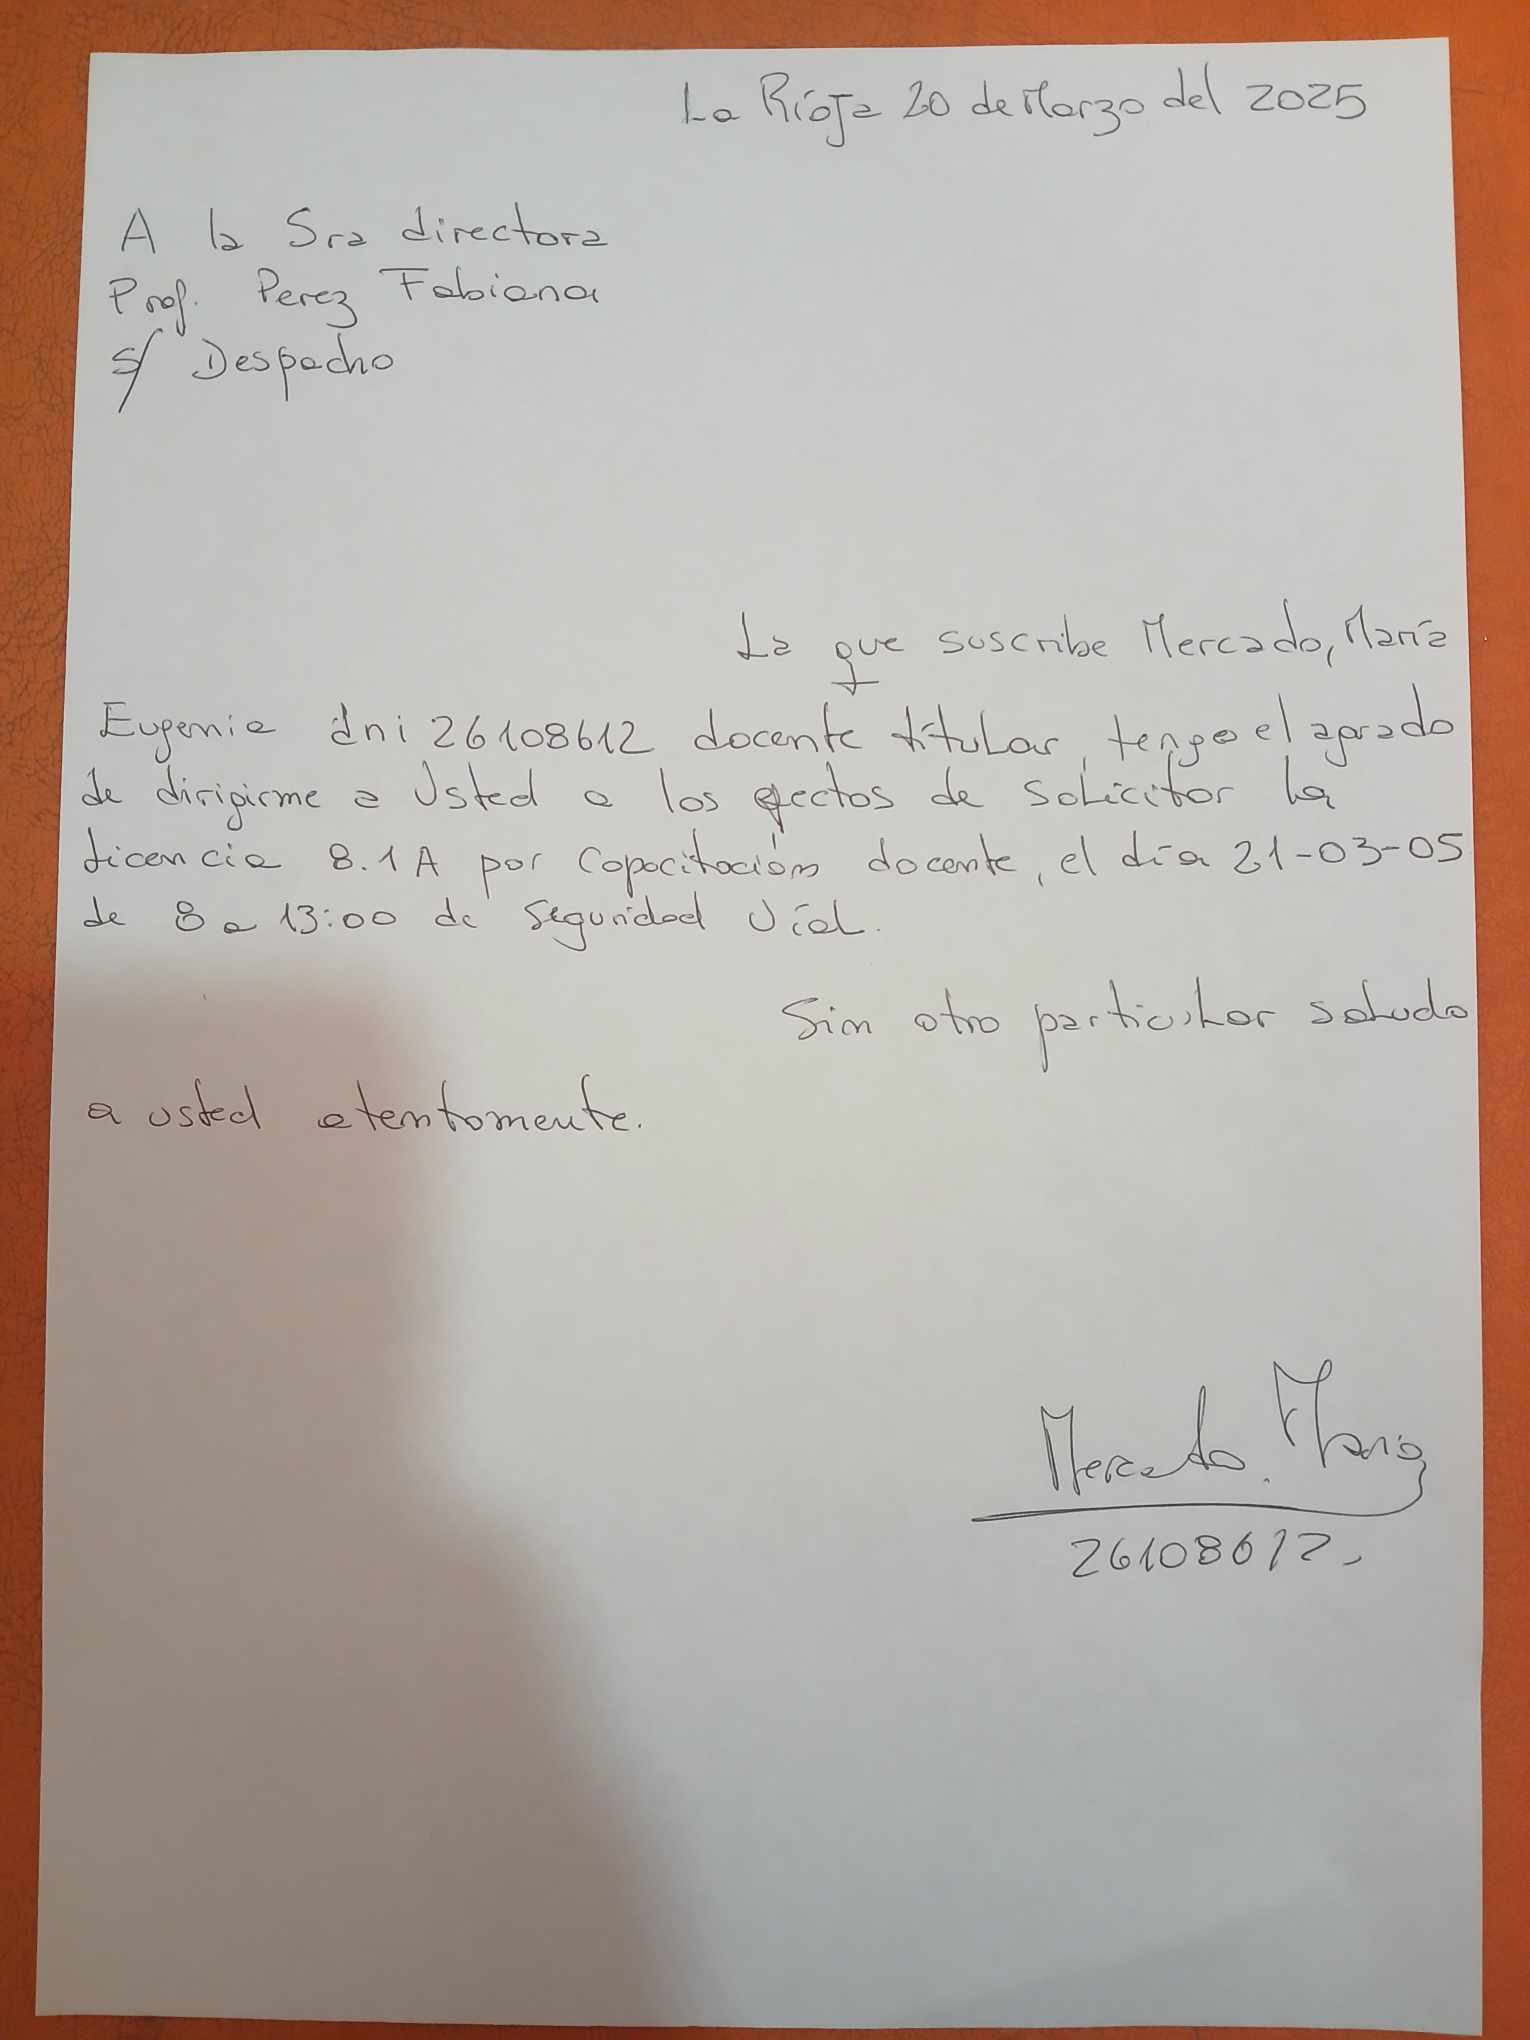 La Rioja 20 de Marzo del 2025
A la Sra directora
Prof. Perez Fabiana
S/ Despacho
La que suscribe Mercado, María
Eugenia dni 26108612 docente titular, tengo el agrado
de dirigirme a Usted a los efectos de solicitar la
licencia 8.1A por Capacitación docente, el día 21-03-05
de 8 a 13:00 de Seguridad Vial.
Sin otro particular saludo
a usted atentamente.
Mercado. María
26108612